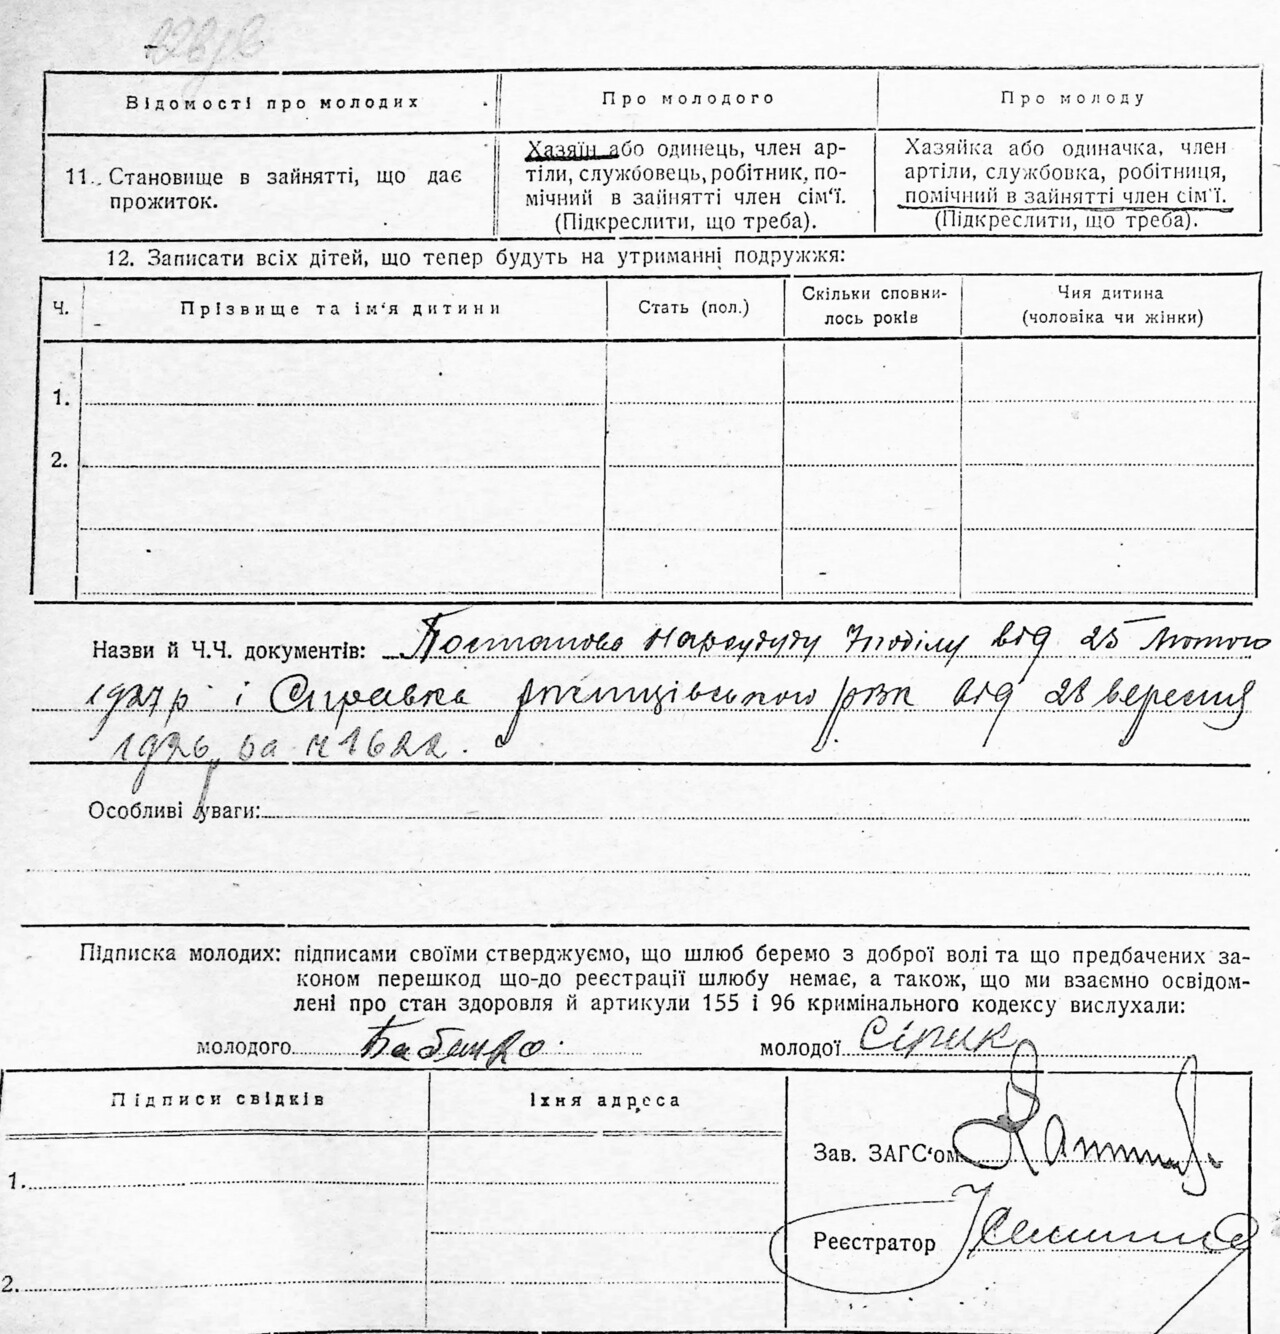 Відомості про молодих
Про молодого
Про молоду
11. Становище в зайнятті, що дає
прожиток.
Хазяїн або одинець, член ар-
тіли, службовець, робітник, по-
мічний в зайнятті член сім'ї.
(Підкреслити, що треба).
Хазяйка або одиначка, член
артіли, службовка, робітниця,
помічний в зайнятті член сім'ї.
(Підкреслити, що треба).
12. Записати всіх дітей, що тепер будуть на утриманні подружжя:
Ч.
Прізвище та ім'я дитини
Стать (пол.)
Скільки сповни-
лось років
Чия дитина
(чоловіка чи жінки)
1.
2.
Назви й Ч.Ч. документів: Постанова Нарсуду від 25 Лютого
1927 р і Справка рвк від 28 вересня
1926 за н 1622.
Особливі уваги:
Підписка молодих: підписами своїми стверджуємо, що шлюб беремо з доброї волі та що предбачених за-
коном перешкод що-до реєстрації шлюбу немає, а також, що ми взаємно освідом-
лені про стан здоровля й артикули 155 і 96 кримінального кодексу вислухали:
молодого Бабенко
молодої Сірик
Підписи свідків
Їхня адреса
1.
2.
Зав. ЗАГС'ом
Реєстратор